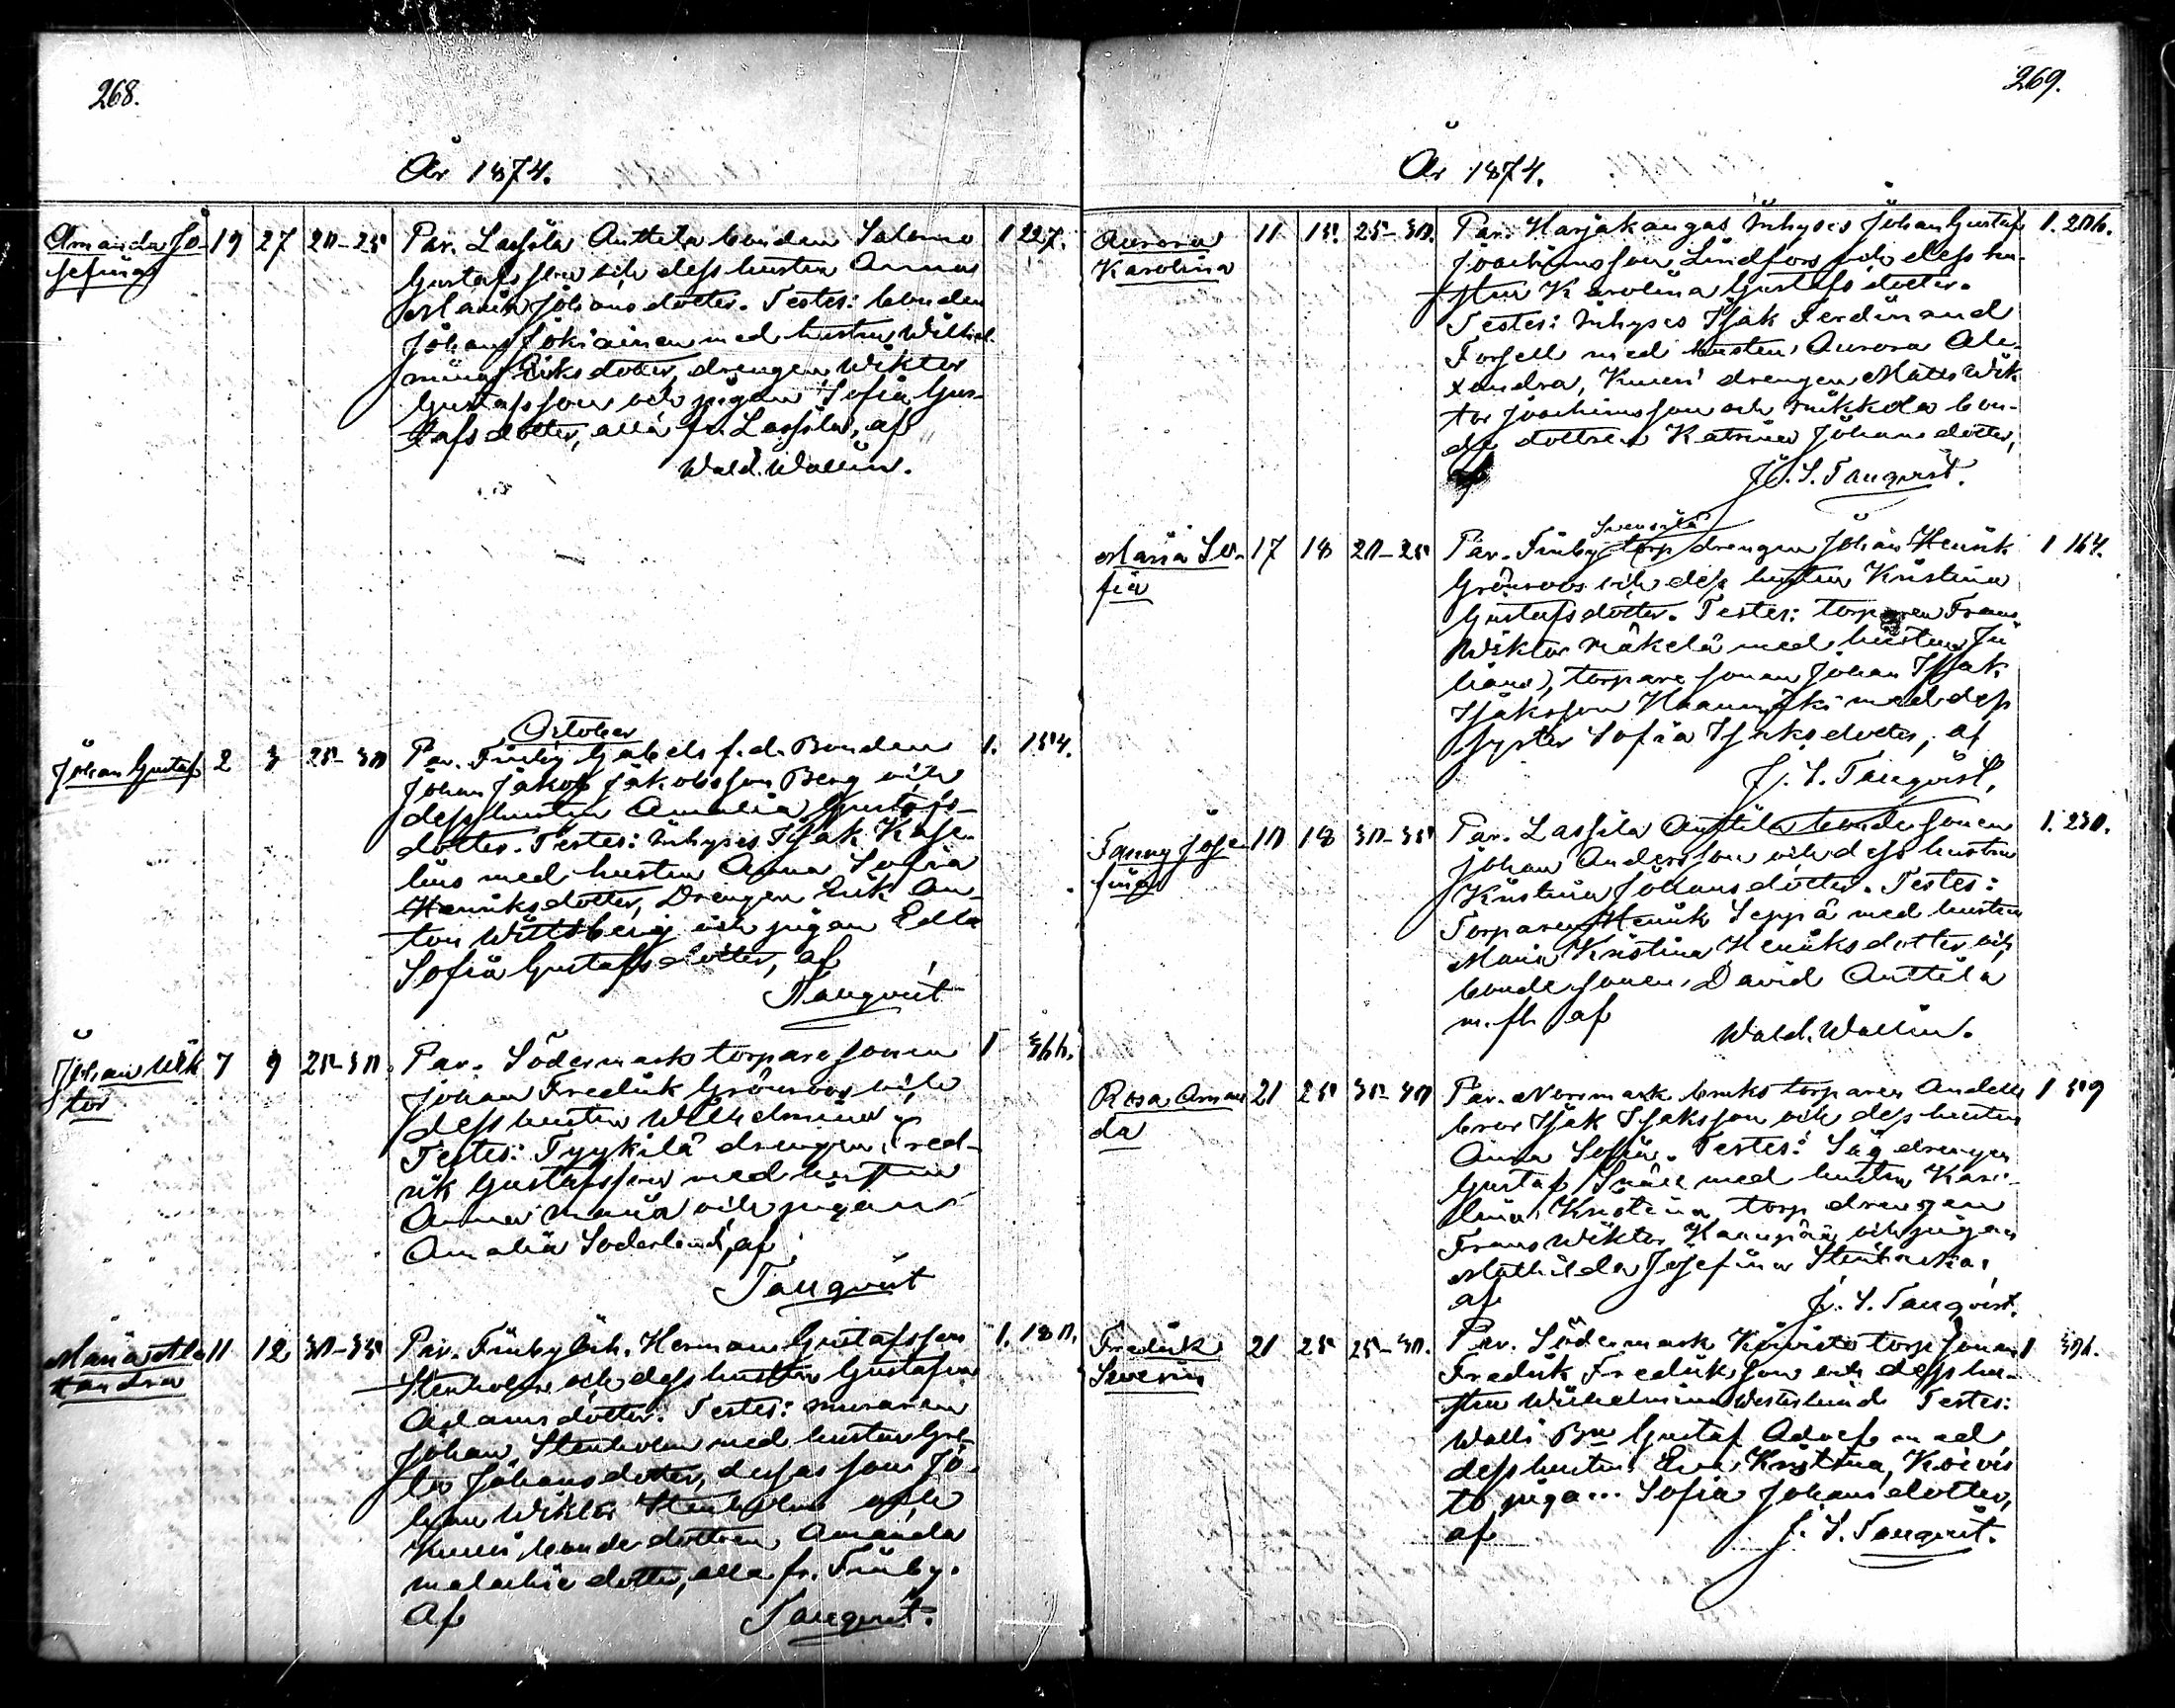 268.
År 1874.
Amanda Jo- 19 27 20-25 Par. Lassila Anttila bonden Salomo 1 227.
sefina Gustafsson och dess hustru Anna
Maria Johansdotter. Testes: bonden
Johan Jokiainen med hustru Wilhel-
mina Eriksdotter, drengen Wiktor
Gustafsson och pigan Sofia Gus-
tafsdotter, alla fr. Lassila, af
Wald. Wallin.
October
Johan Gustaf 2 3 25-30 Par. Finby Gabels f.d. Bonden 1. 154.
Johan Jakob Jakobsson Berg och
dess hustru Amalia Gustafs-
dotter. Testes: Inhyses Isak Kase-
lius med hustru Anna Sofia
Henriksdotter, Drengen Erik An-
ton Wittsberg och pigan Edla
Sofia Gustafsdotter, af
Tanqvist
Johan Wik 7 9 25-30. Par. Södermark torpare sonen 1 366.
tor Johan Fredrik Grönroos och
dess hustru Wilhelmina
Testes: Tyykilä drengen Fred-
rik Gustafsson med hustru
Anna Maria och pigan
Amalia Soderlund, af
Tanqvist
Maria Ale 11 12 30-35 Par. Finby Herman Gustafsson 1. 180.
xandra Stenholm och dess hustru Gustafva
Adamsdotter. Testes: muraren
Johan Stenholm med hustru Gre-
ta Johansdotter, dessas son Jo-
han Wiktor Stenholm och
Knuus bonde dottren Amanda
Malachie dotter, alla fr. Finby.
Af Tanqvist.
269.
År 1874.
Aurora 11 15. 25-30. Par. Harjakangas Inhyses Johan Gustaf 1. 206.
Karolina Joachimsson Lindfors och dess hu-
stru Karolina Gustafsdotter.
Testes: Inhyses Isak Ferdinand
Forsell med hustru Aurora Ale-
xandra, drengen Matts Wik
tor Joachimsson och bon-
de dottren Katrina Johansdotter,
af J. S. Tanqvist.
Svensilä
Maria So- 17 18 20-25 Par. Finby torp drengen Johan Henrik 1 164.
fia Grönroos och dess hustru Kristina
Gustafsdotter. Testes: torparen Frans
Wiktor Mäkelä med hustru Ju
liana, torpare sonen Johan Isak
Isaksson med dess
syster Sofia Isaksdotter, af
J. S. Tanqvist,
Fanny Jose- 10 18 30-35 Par. Lassila Anttila bonde sonen 1. 230.
fina Johan Andersson och dess hustru
Kristina Johansdotter. Testes:
Torparen Henrik Seppä med hustru
Maria Kristina Henriksdotter och
bonde sonen David Anttila
m. fl. af Wald. Wallin.
Rosa Aman 21 25 35-40 Par. Norrmark bruks torparen Andell 1 59
da bror Isak Isaksson och dess hustru
Anna Sofia. Testes: Såg drengen
Gustaf med hustru Karo-
lina Kristina, torp drengen
Frans Wiktor Haanpää och pigan
Mathilda Josefina Stenbacka,
af J. S. Tanqvist,
Fredrik 21 25 25-30. Par. Södermark Koivisto torp sonen 1 306.
Severin Fredrik Fredriksson och dess hu-
stru Wilhelmina Westerlund Testes:
Walli Gustaf Adolf med
dess hustru Eva Kristina, Koivis
to piga... Sofia Johansdotter,
af J. S. Tanqvist.